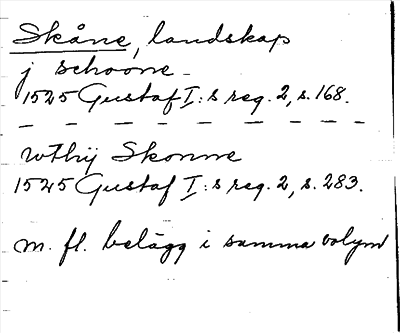 Skåne, landskap
j schoone
1525 Gustaf I:s reg. 2, s. 168.
wthij Skonne
1525 Gustaf I:s reg. 2, s. 283.
m. fl. belägg i samma volym